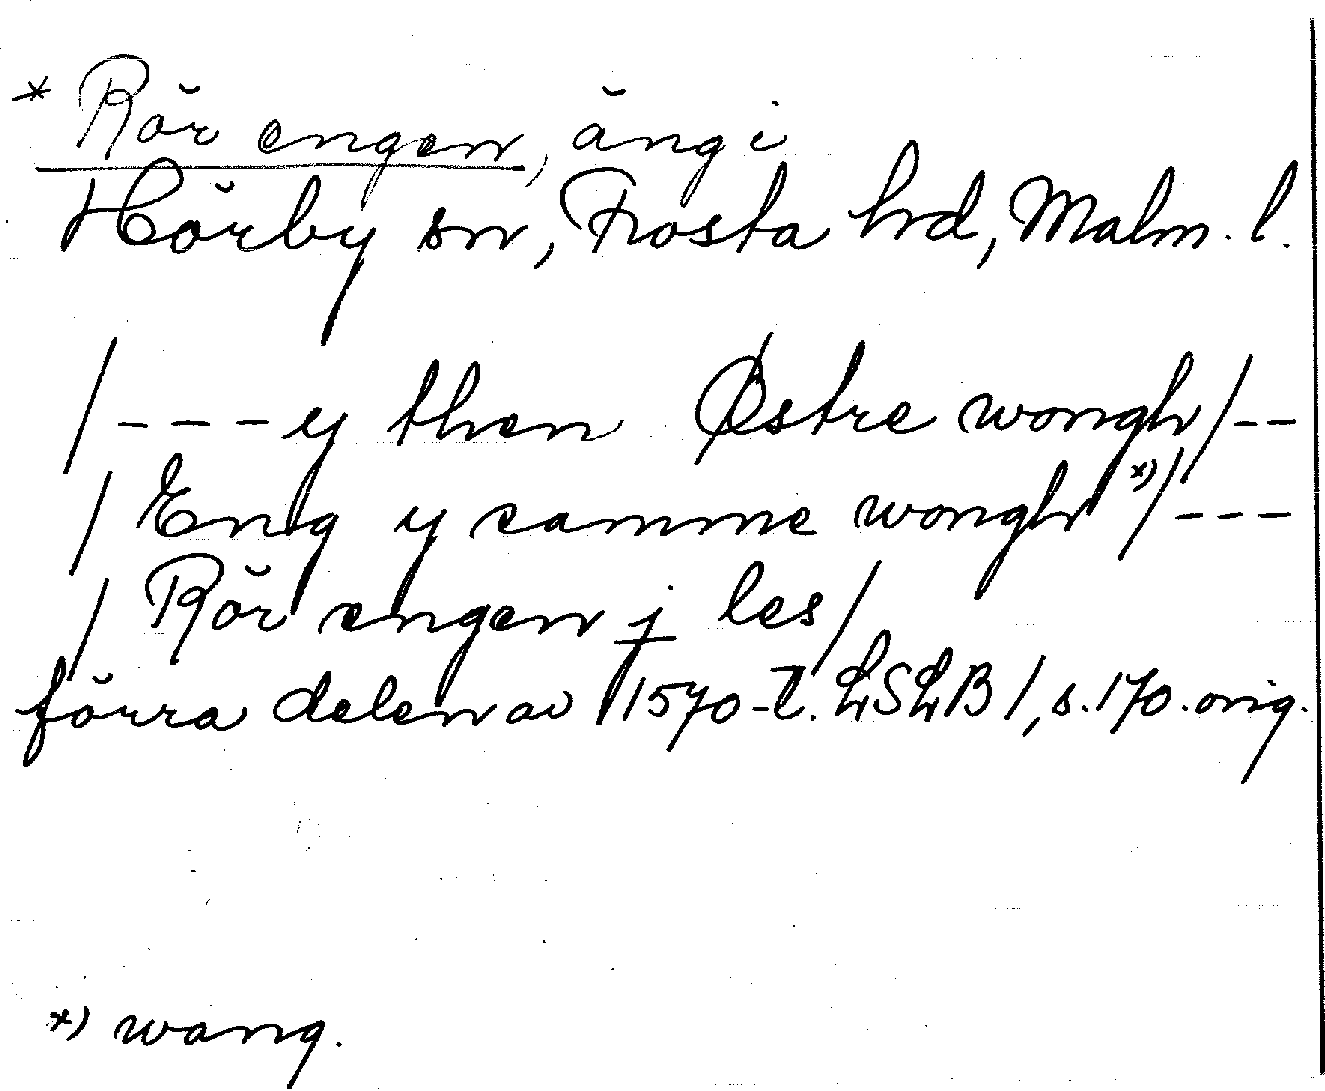 * Rör engen, äng i
Hörby sn, Frosta hrd, Malm. l.
/ - - - y then Østre wongh / - -
/ Eng y samme wongh *) / - - -
/ Rör engen j les /
förra delen av 1570-t. LSLB 1, s. 170. orig.
*) wang.